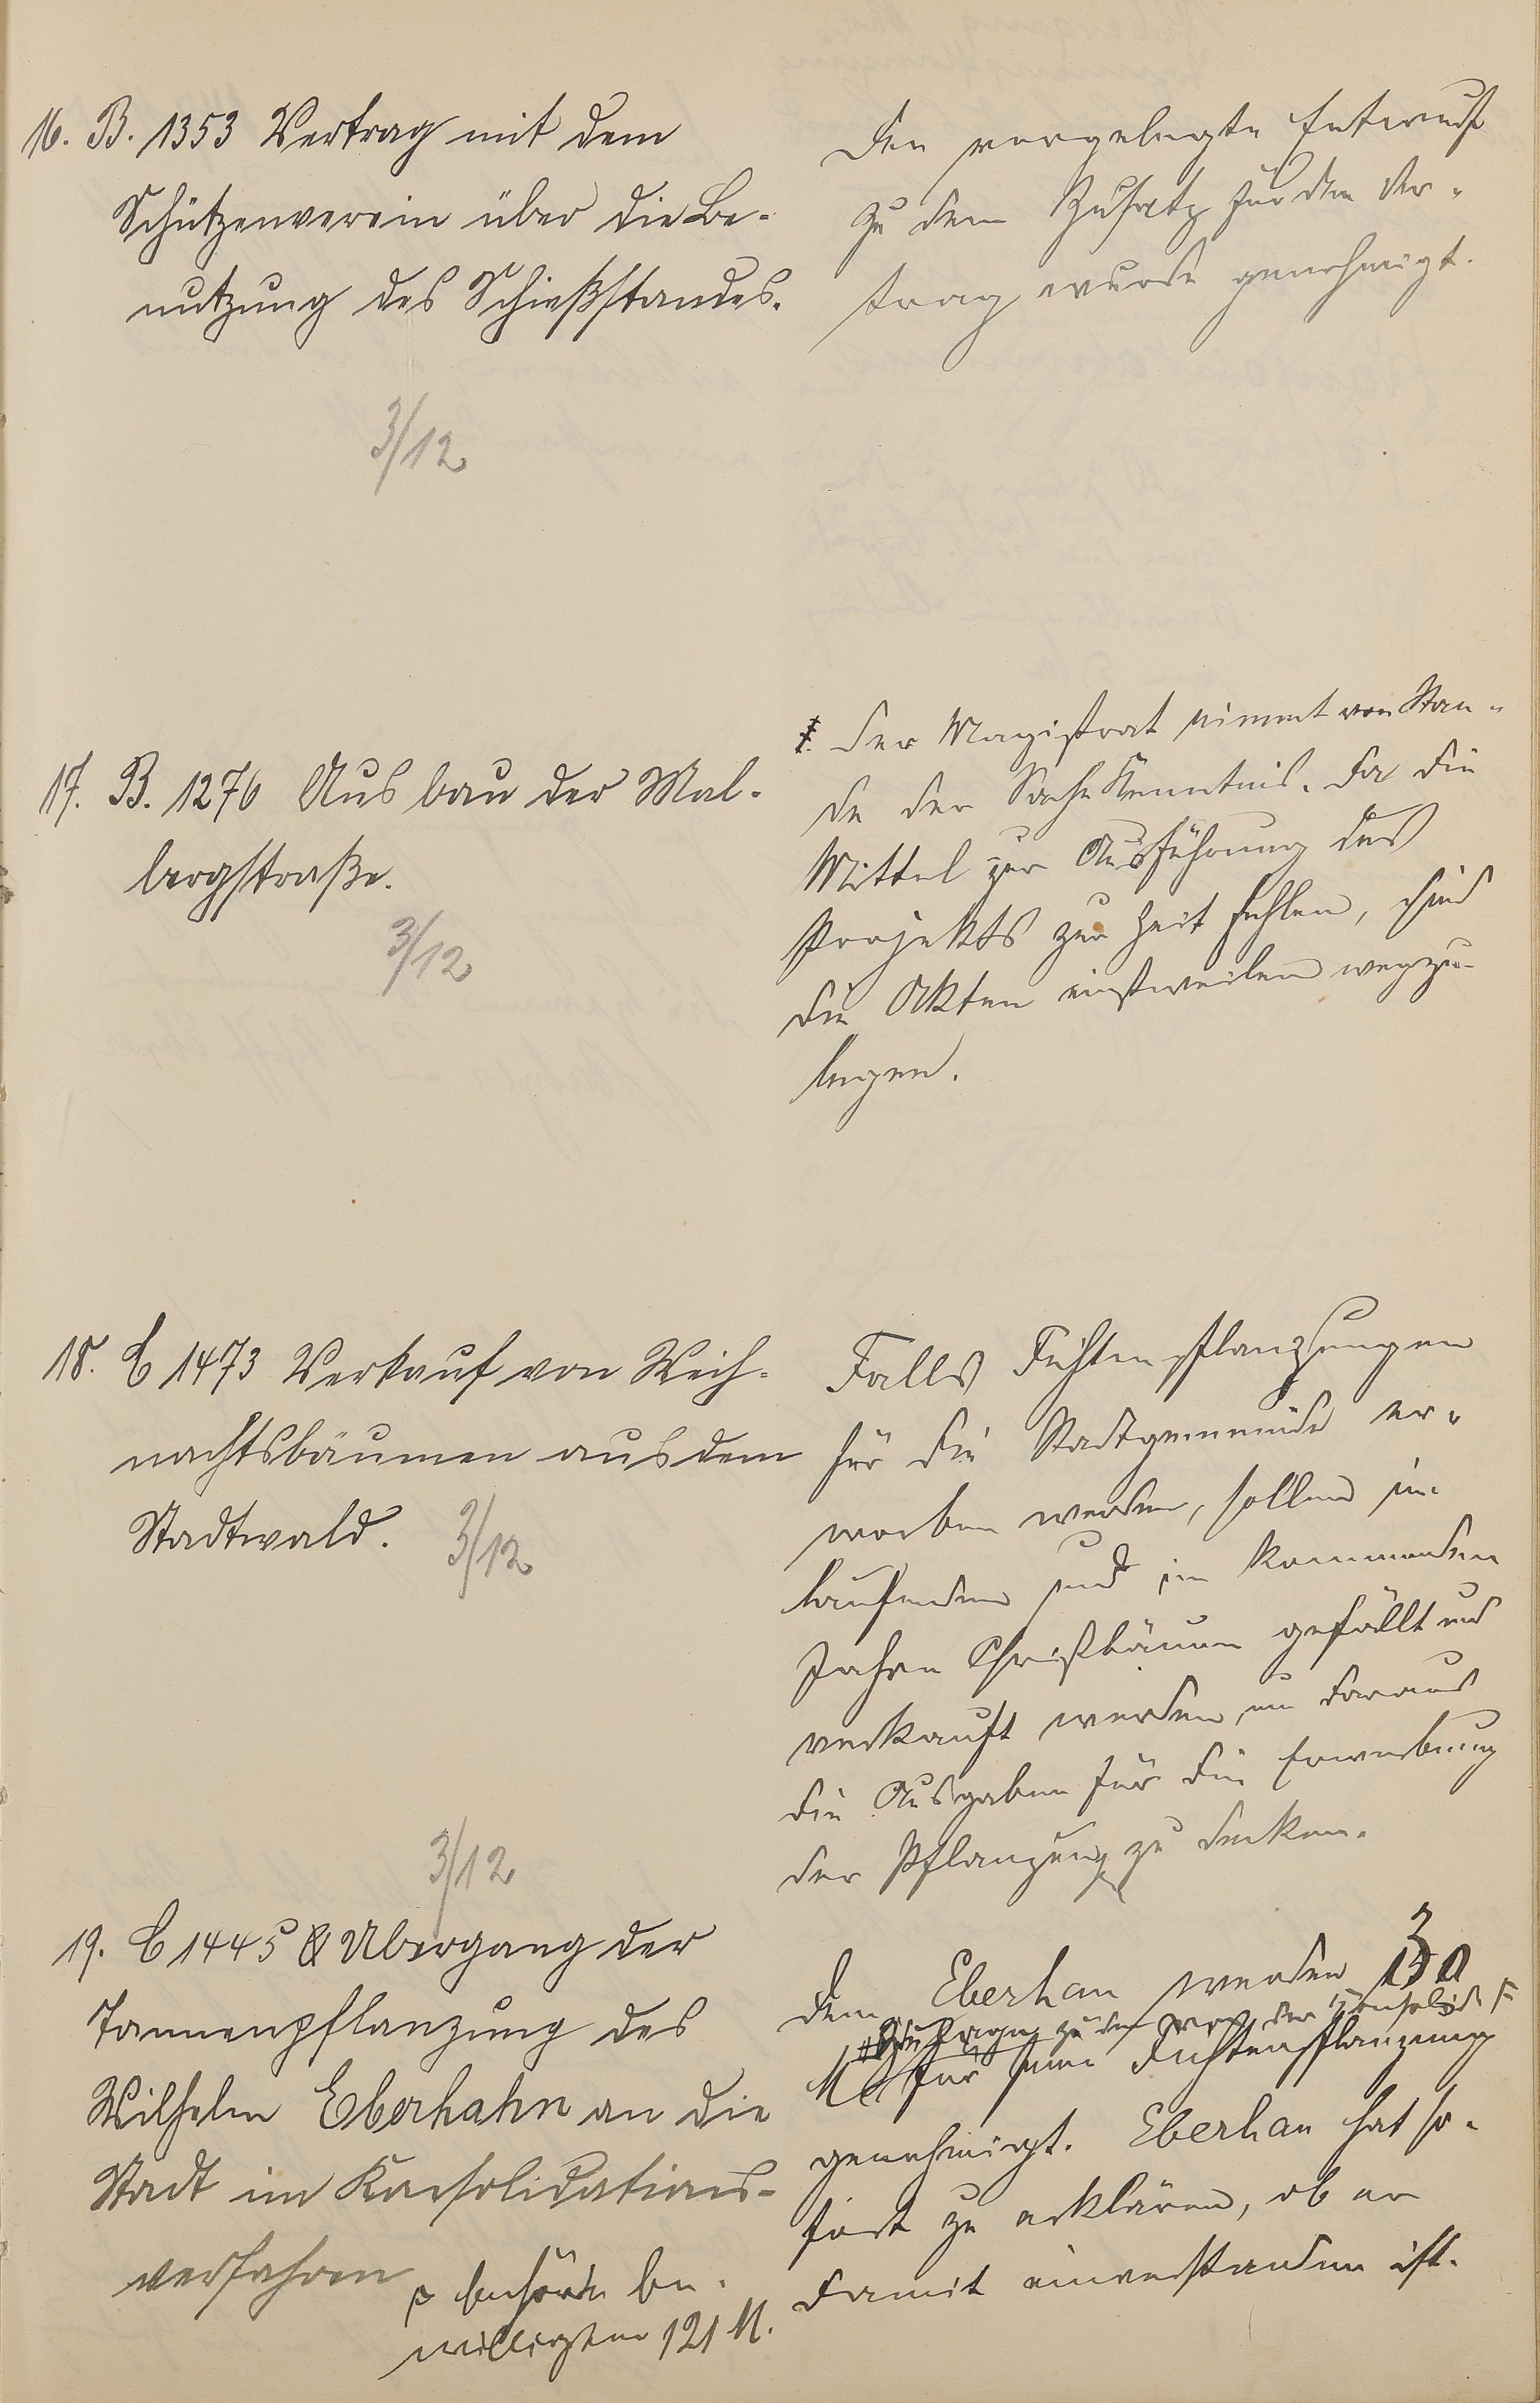 16. B. 1353 Vertrag mit dem
Schützenverein über die Be-
nutzung des Schießstandes.
3/12
Der vorgelegte Entwurf
zu dem Zusatz für den Ver-
trag wurde genehmigt.
17. B. 1276 Ausbau der Mal-
bergstraße.
3/12
Der Magistrat nimmt von Stan-
de der Sache Kenntnis. Da die
Mittel zur Ausführung des
Projekts zur Zeit fehlen, sind
die Akten einstweilen wegzu-
legen.
18. C 1473 Verkauf von Weih-
nachtsbäumen aus dem
Stadtwald.
3/12
Falls Fichtenpflanzungen
für die Stadtgemeinde er-
worben werden, sollen im
laufenden und im kommenden
Jahre Christbäume gefällt und
verkauft werden um daraus
die Ausgaben für die Erwerbung
der Pflanzung zu decken.
3/12
19. C 1445 Übergang der
Tannenpflanzung des
Wilhelm Eberhahn an die
Stadt im Konsolidations-
verfahren
Dem Eberhan werden 30
zu den von der Konsolid
M für seine Fichtenpflanzung
genehmigt. Eberhan hat so-
fort zu erklären, ob er
damit einverstanden ist.
behörde be-
willigten 121 M.